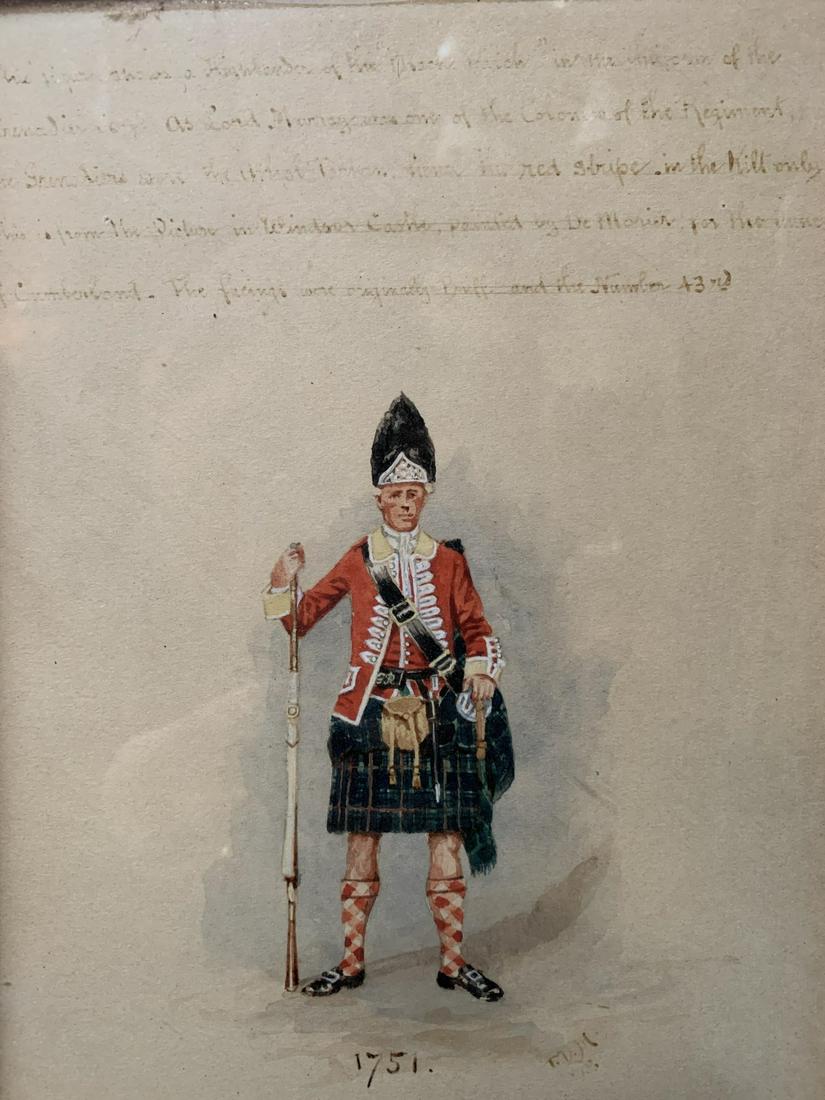 figure shows a Highlander of the "Black Watch" in the uniform of the
As Lord Murray was one of the Colonels of the Regiment,
Grenadiers wore the Athol Tartan, the red stripe in the Kilt only
This is from the Picture in Windsor Castle, painted by De Morier, for the
of Cumberland. The facings were originally Buff and the Number 43rd
1751.